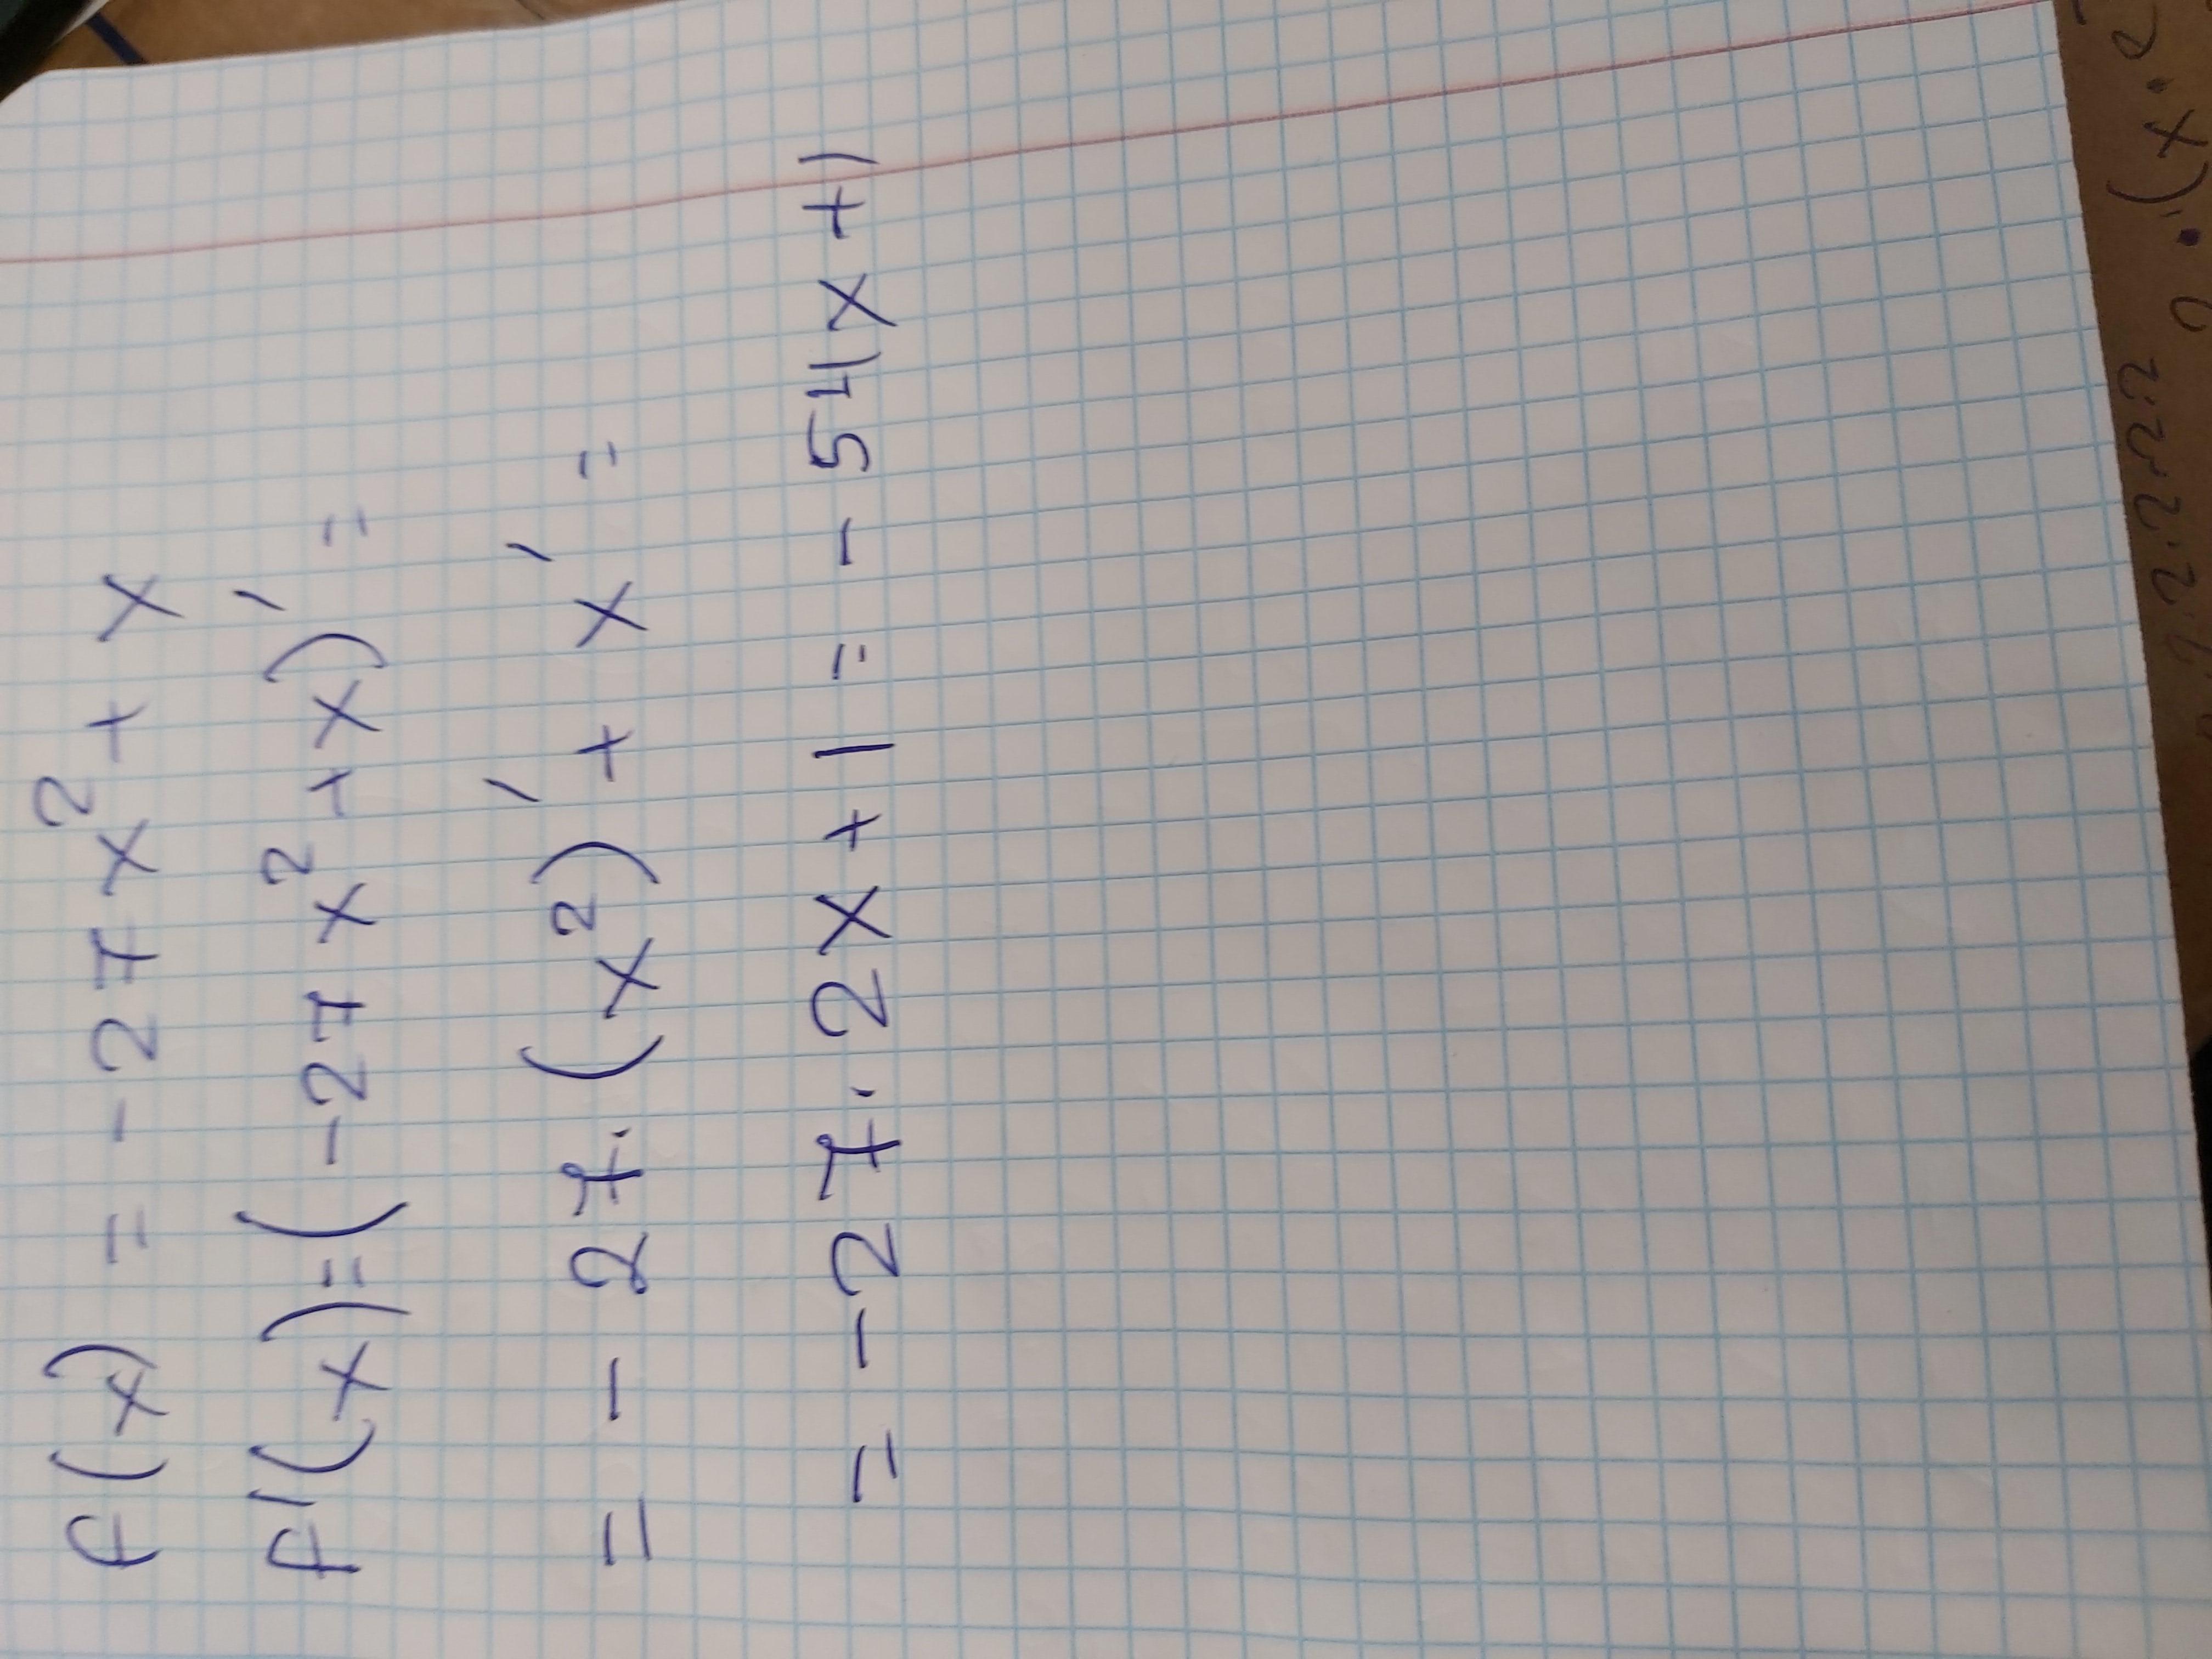 f(x) = -27x² + x
f'(x)=(-27x²+x)' =
= - 27·(x²)' + x' =
= -27·2x+1 = -54x+1